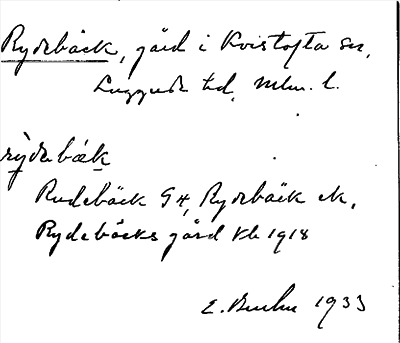 Rydebäck, gård i Kvistofta sn,
Luggude hd, Mlm. l.
rỳdebák
Rudebäck G4, Rydebäck ek,
Rydebäcks gård kb 1918
E. 1933